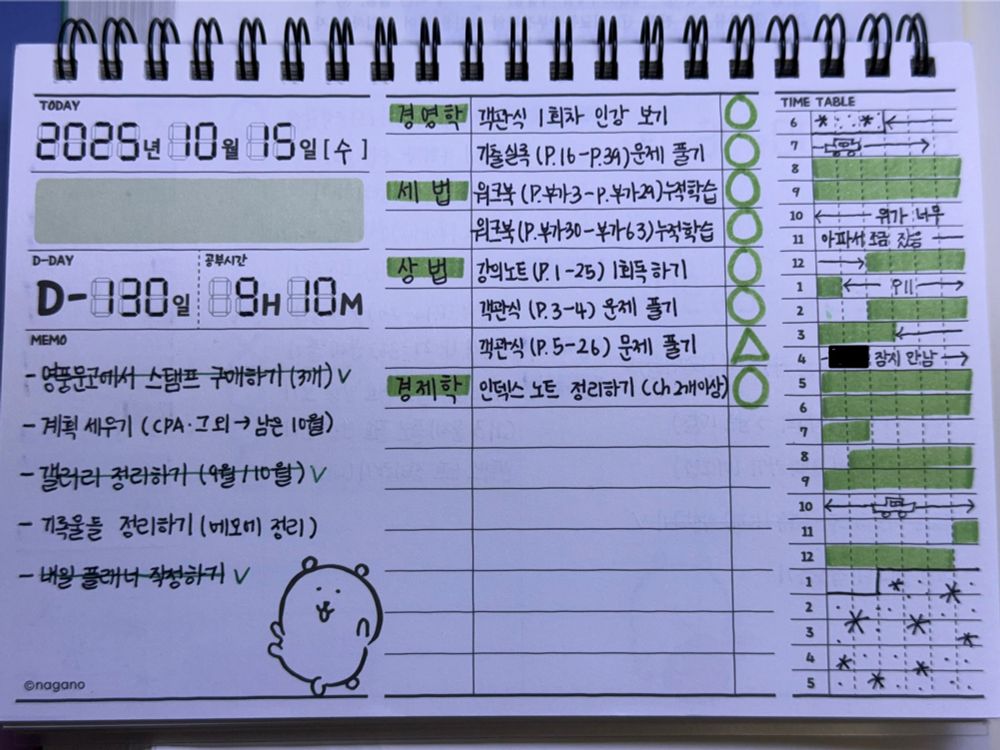 TODAY
2025년 10월 15일 [수]
D-DAY
D-130일
공부시간
9H 10M
MEMO
- 영풍문고에서 스탬프 구매하기 (3개) ✓
- 계획 세우기 (CPA·그외→남은 10월)
- 갤러리 정리하기 (9월/10월) ✓
- 기록물들 정리하기 (메모에 정리)
- 내일 플래너 작성하기 ✓
©nagano
경영학 객관식 1회차 인강 보기
기출실록 (P.16-P.39) 문제 풀기
세법 워크북 (P.부가3-P.부가29) 누적학습
워크북 (P.부가30-부가63) 누적학습
상법 강의노트 (P.1-25) 1회독 하기
객관식 (P.3-4) 문제 풀기
객관식 (P.5-26) 문제 풀기
경제학 인덱스 노트 정리하기 (Ch 2개이상)
TIME TABLE
6
7
8
9
10 위가 너무
11 아파서 조금 잤음
12
1
2
3
4 잠시 만남
5
6
7
8
9
10
11
12
1
2
3
4
5